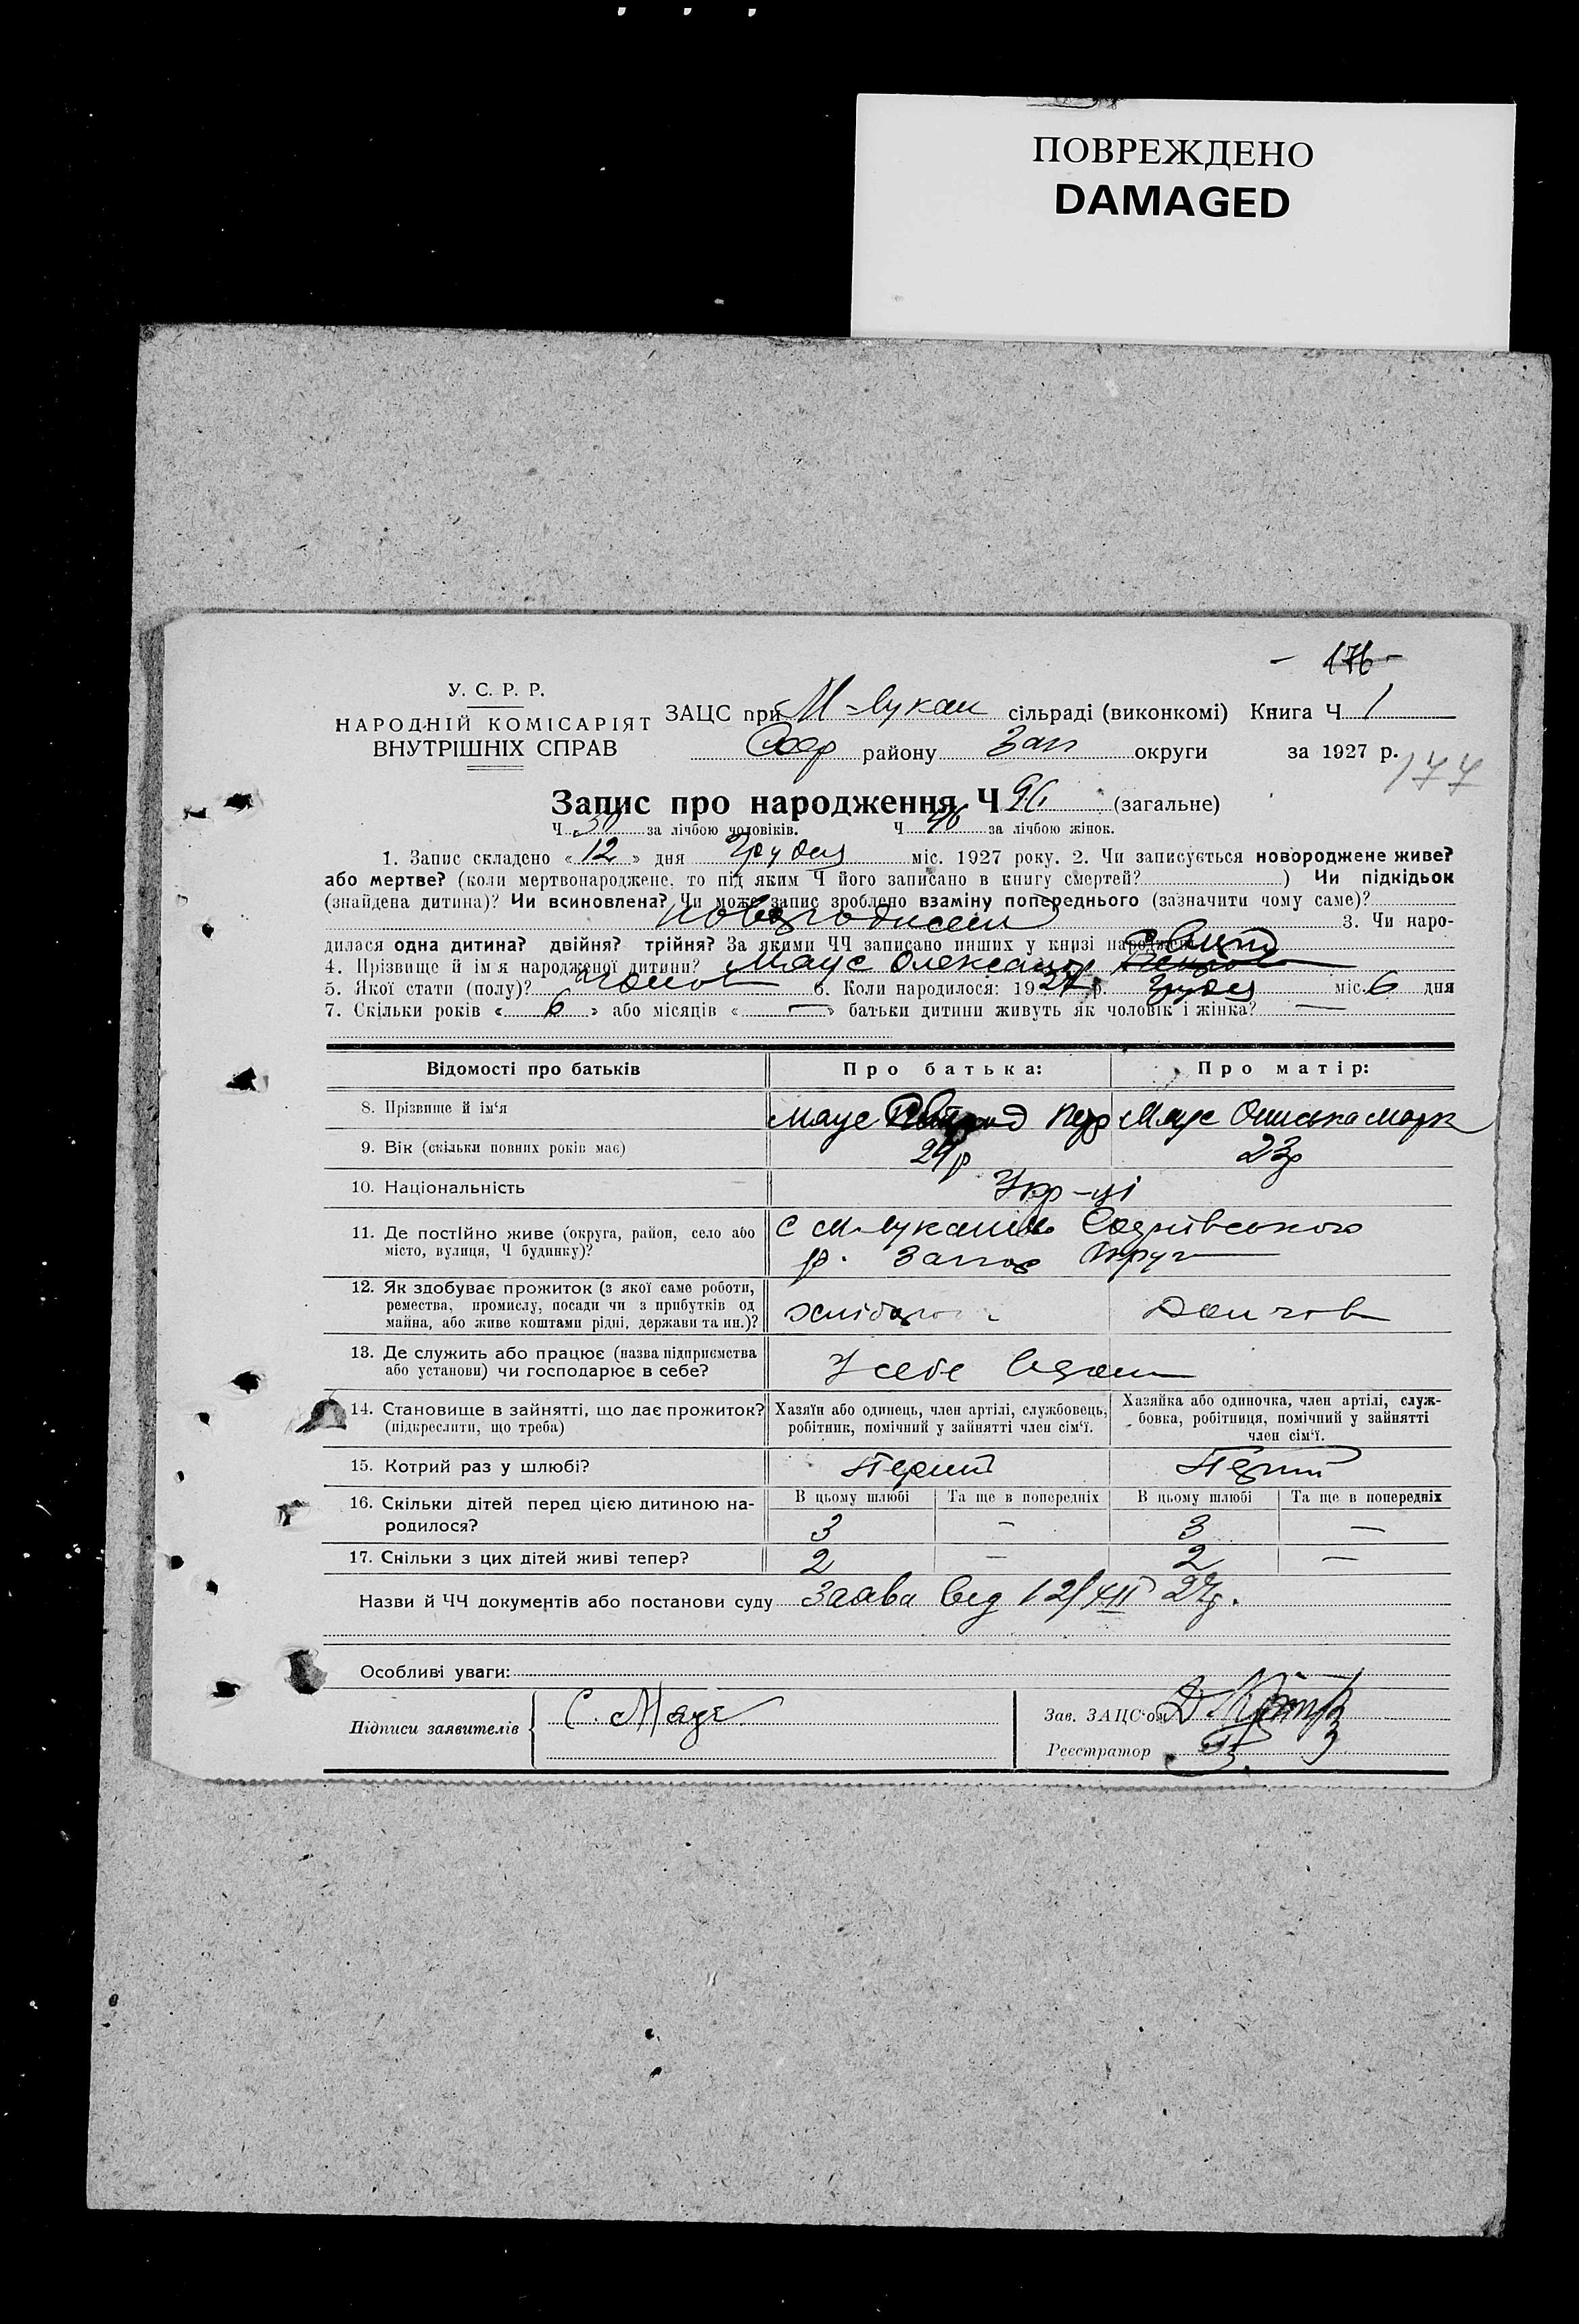 ПОВРЕЖДЕНО
DAMAGED
176
У. С. Р. Р.
НАРОДНІЙ КОМІСАРІЯТ
ВНУТРІШНІХ СПРАВ
ЗАЦС при М-Лукаш сільраді (виконкомі) Книга Ч 1
району Зап округи за 1927 р.
177
Запис про народження Ч 96 (загальне)
Ч за лічбою чоловіків. Ч 46 за лічбою жінок.
1. Запис складено « 12 » дня Грудня міс. 1927 року. 2. Чи записується новороджене живе?
або мертве? (коли мертвонароджене, то під яким Ч його записано в книгу смертей? ) Чи підкідьок
(знайдена дитина)? Чи всиновлена? Чи може запис зроблено взаміну попереднього (зазначити чому саме)?
3. Чи наро-
дилася одна дитина? двійня? трійня? За якими ЧЧ записано инших у книзі народжень
4. Прізвище й ім'я народженої дитини? Маус Олександр
5. Якої стати (полу)? 6. Коли народилося: 1927 р. Грудня міс. 6 дня
7. Скільки років « 6 » або місяців « — » батьки дитини живуть як чоловік і жінка? —
Відомості про батьків
Про батька:
Про матір:
8. Прізвище й ім'я Маус Маус
9. Вік (скільки повних років має) 24р 23р
10. Національність Укр-ці
11. Де постійно живе (округа, район, село або
місто, вулиця, Ч будинку)?
С М-Лукашів
р. Запор Округ
12. Як здобуває прожиток (з якої саме роботи,
ремества, промислу, посади чи з прибутків од
майна, або живе коштами рідні, держави та ин.)?
13. Де служить або працює (назва підприємства
або установи) чи господарює в себе?
У себе вдома
14. Становище в зайнятті, що дає прожиток?
(підкреслити, що треба)
Хазяїн або одинець, член артілі, службовець,
робітник, помічний у зайнятті член сім'ї.
Хазяйка або одиночка, член артілі, служ-
бовка, робітниця, помічний у зайнятті
член сім'ї.
15. Котрий раз у шлюбі? Перший Перший
16. Скільки дітей перед цією дитиною на-
родилося?
В цьому шлюбі Та ще в попередніх В цьому шлюбі Та ще в попередніх
3 — 3 —
17. Скільки з цих дітей живі тепер? 2 — 2 —
Назви й ЧЧ документів або постанови суду Заява від 12/XII 27р.
Особливі уваги:
Підписи заявителів С. Маус
Зав. ЗАЦС'ом
Реєстратор